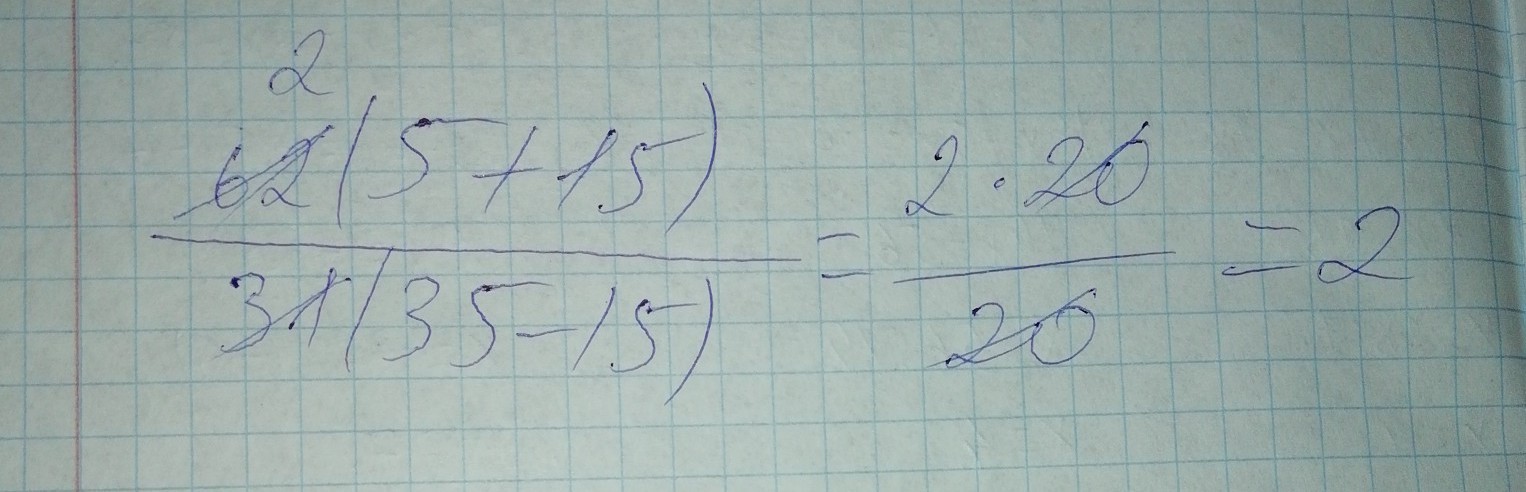 2
62(5+15)
31(35-15)
=
2·20
20
=2